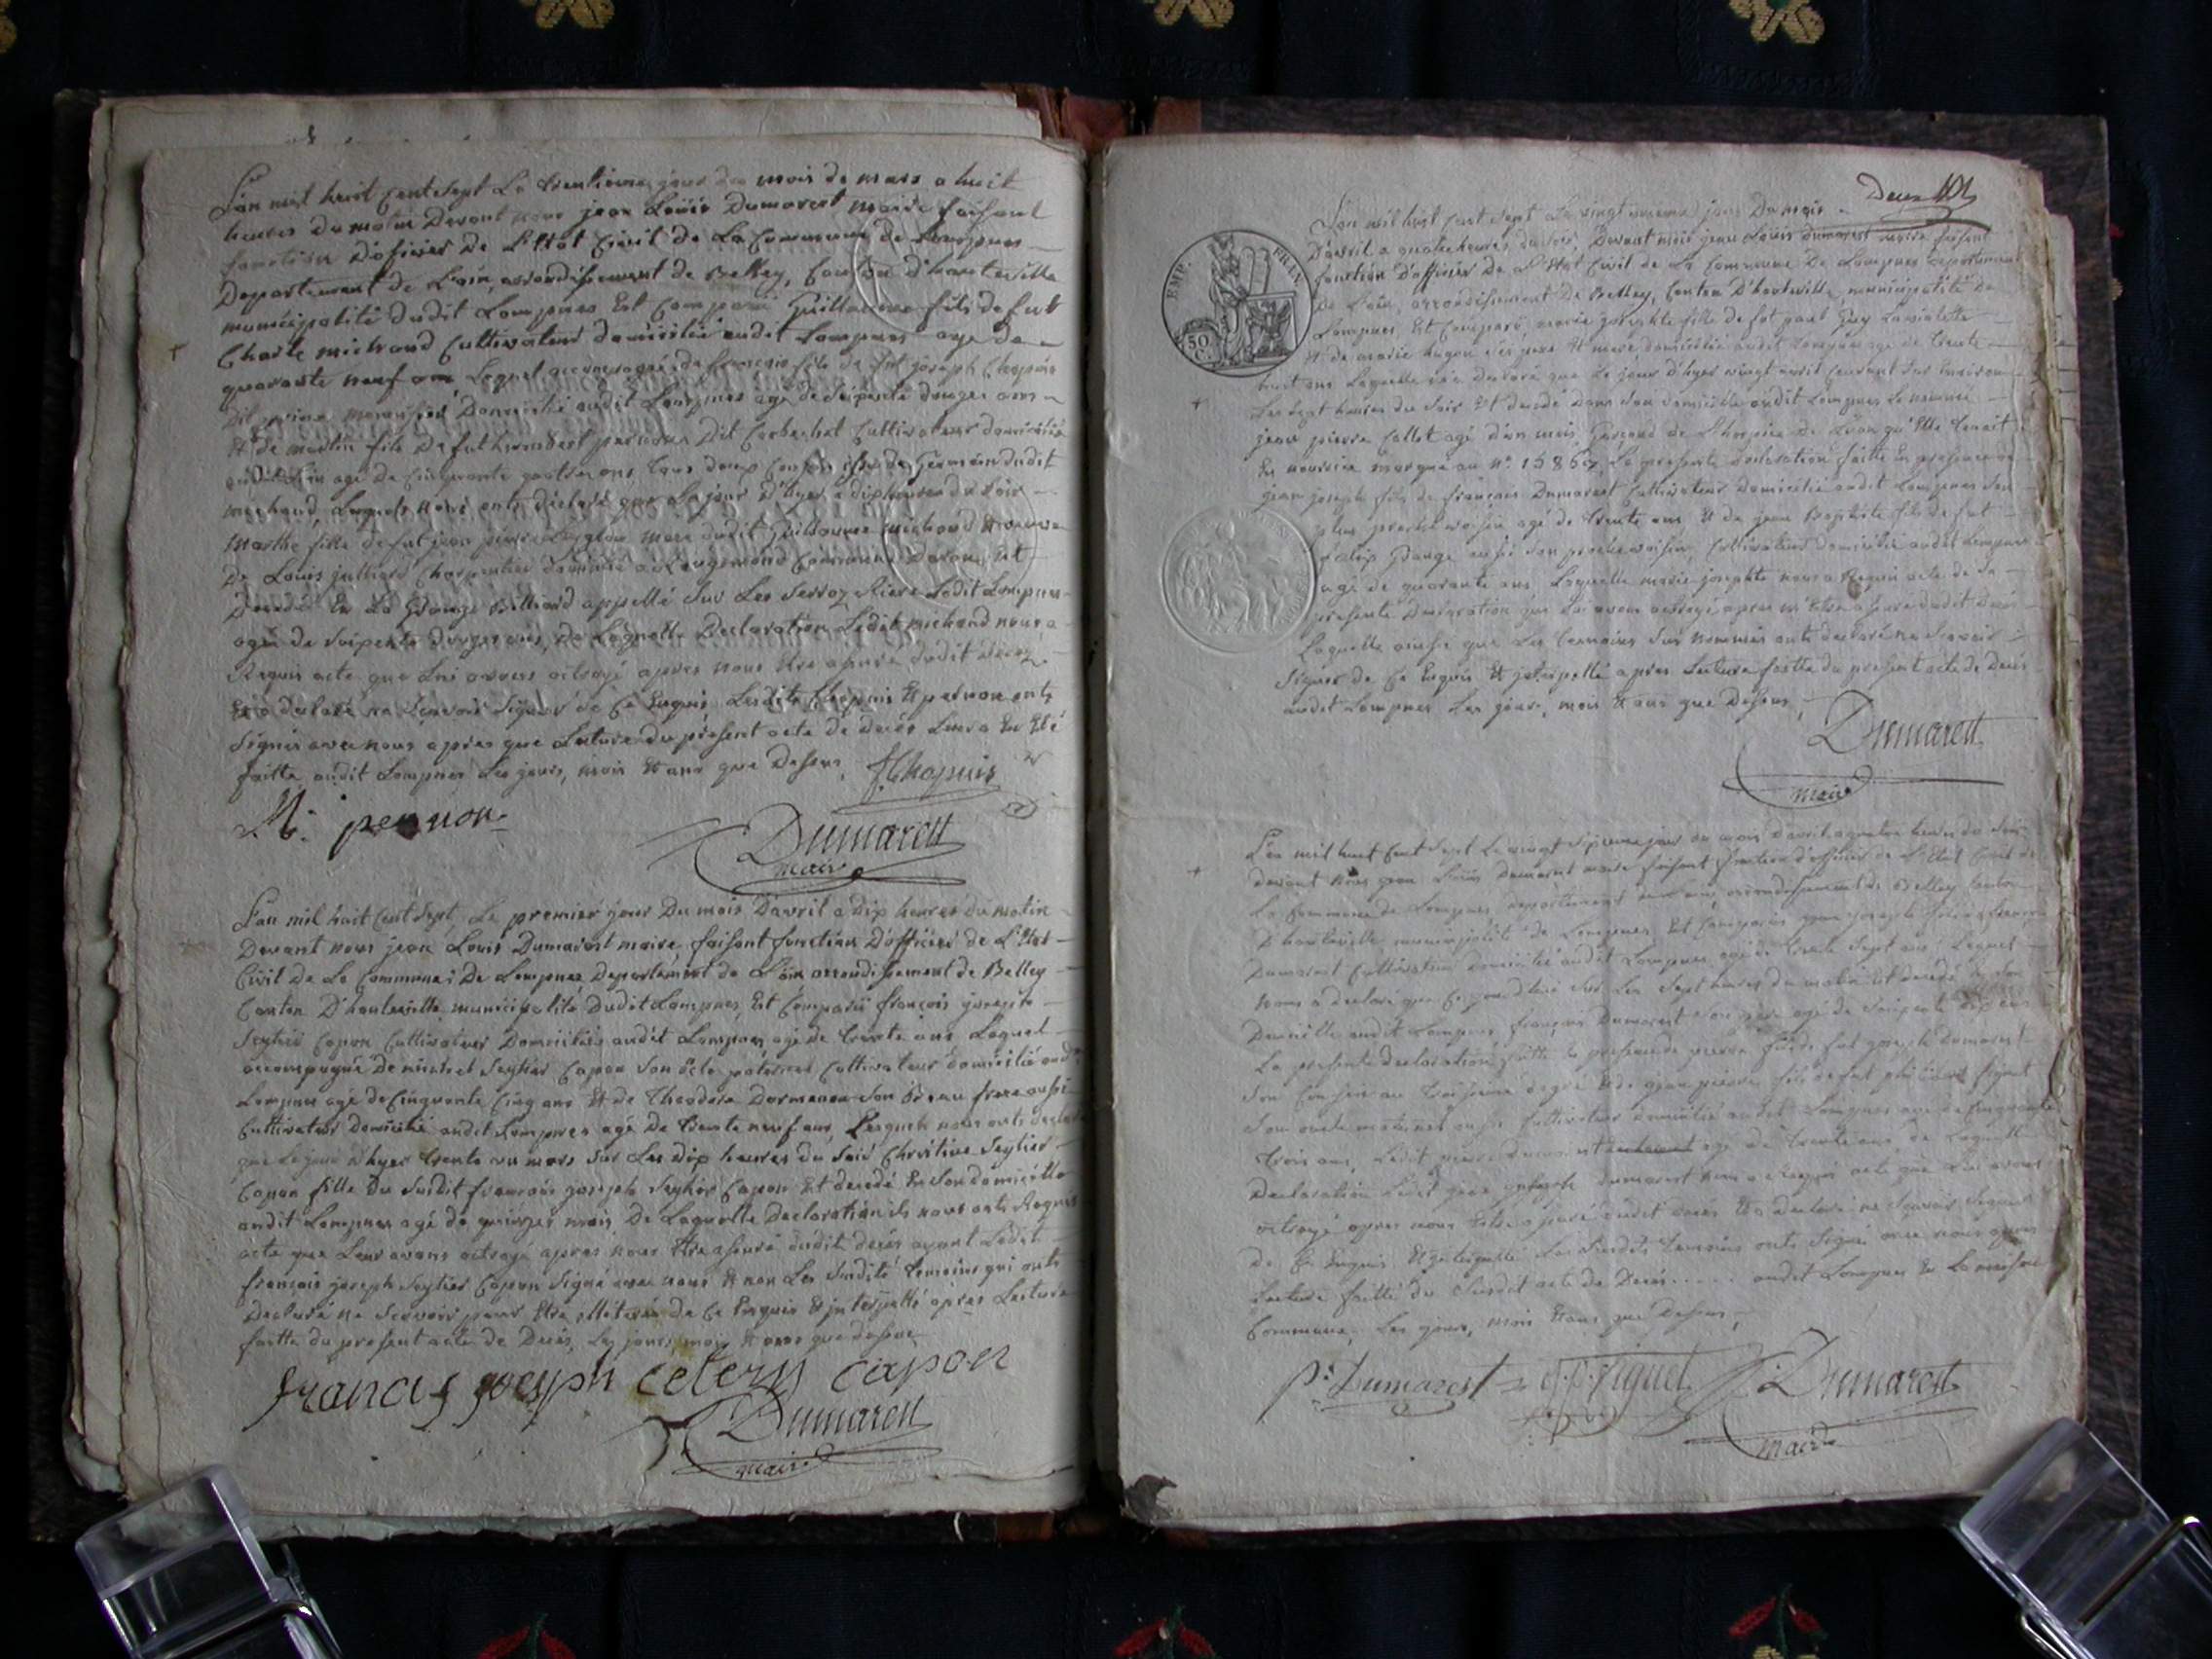 L'an mil huit Cent Sept Le trentieme jour du mois de mars a huit
heures du matin Devant nous jean Loüis Dumarest maire faisant
fonction D'oficier de L'Etat Civil de La Commune de Lompnes
Departement de L'ain arrondissement de Belley, Canton d'hauteville
municipalité dudit Lompnes Est Comparu Guillaume fils de fut
Charle michaud Cultivateur domicilié audit Lompnes age de
quarante neuf ans Lequel accompagné de francois fils de fut joseph Chapuis
Dit Domicilié audit Lompnes age de Soixante douzes ans
Et de martin fils De fut humbert pernon Dit Cultivateur domicilié
age de Cinquante quatre ans, tous deux Cousin issu de Germain dudit
michaud, Lesquels nous onts déclaré que Le jour d'hyer a dix heures du Soir
marthe fille de fut jean pierre mere dudit Guillaume michaud Et veuve
De Louis julliard Charpentier Commune Est
Decedé En La Grange Billiard appellé Sur Les Serroz Riere Ledit Lompnes
agée de Soixante douzes ans, de Laquelle Declaration Ledit michaud nous a
Requis acte que Lui avons octroyé apres nous Etre asuré dudit deces
Et a declaré ne Scavoir Signer de Ce Enquis Lesdits Chapuis Et pernon onts
Signés avec nous apres que Lecture du présent acte de decés Leur a En Eté
faitte audit Lompnes Les jours, mois Et ans que Dessus. f. Chapuis
M: pernon
Dumarest
maire
L'an mil huit Cent Sept, Le premier jour Du mois D'avril a Dix heures du matin
Devant nous jean Louis Dumarest maire, faisant fonction D'officier de L'Etat
Civil de La Commune De Lompnes Departement de L'ain arrondissement de Belley
Canton D'hauteville municipalité Dudit Lompnes Est Comparu françois joseph
Seytier Capon Cultivateur Domicilié audit Lompnes agé de trente ans Lequel
accompagné De michel Seytier Capon Son oncle paternel Cultivateur domicilié audit
Lompnes agé de Cinquante Cinq ans Et de Theodore Dormeman Son Beau frere aussi
Cultivateur domicilié audit Lompnes agé De trente neuf ans, Lesquels nous onts declaré
que Le jour d'hyer trente un mars Sur Les Dix heures du Soir Chréstine Seytier
Capon fille Du Susdit francois joseph Seytier Capon Est decedé En Son domicille
audit Lompnes agé de quinzes mois De Laquelle Declaration ils nous onts Requis
acte que Leur avons octroyé apres nous Etre asuré dudit decés ayant Ledit
françois joseph Seytier Capon Signé avec nous Et non Les Susdits temoins qui onts
declaré ne Scavoir pour Etre illiteré de Ce Enquis Et interpellé apres Lecture
faitte du present acte de Decés, Les jours, mois Et ans que dessus
francis joesph ceterÿ capon
Dumarest
maire
Deux
EMP. FRAN.
50 C.
L'an mil huit Cent Sept Le vingt unieme jour Du mois
D'avril a quatre heures du Soir, Devant nous jean Louis Dumarest maire faisant
fonction D'officier de L'Etat Civil de La Commune De Lompnes Departement
De L'ain, arrondissement De Belley, Canton D'hauteville, municipalité de
Lompnes, Est Comparu marie josephte fille de fut paul Guy
Et de marie hugon Ses pere Et mere domicilié audit Lompnes age de trente
huit ans Laquelle a declaré que Le jour d'hyer vingt avril Courant Sur Environ
Les Sept heures du Soir Est decedé Dans Son Domicille audit Lompnes Le nommé
jean pierre Collet agé d'un mois de L'hospice de Lyon qu'Elle tenait
En nourrice marqué au No. 15867 La presente Declaration faitte En presence de
jean joseph fils de françois Dumarest Cultivateur domicilié audit Lompnes Son
plus proche voisin agé de trente ans Et de jean Baptiste fils de fut
Grange aussi Son proche voisin, Cultivateur Domicilié audit Lompnes
agé de quarante ans. Laquelle marie josephte nous a Requis acte de Sa
presente Declaration que Lui avons octroyé apres m'Etre assuré dudit decés
Laquelle ainsi que Les temoins Sus nommés onts declaré ne Scavoir
Signer de Ce Enquis Et interpellé apres Lecture faitte du present acte de Decés
audit Lompnes Les jours, mois Et ans que Dessus
Dumarest
maire
L'an mil huit Cent Sept Le vingt Sixieme jour du mois d'avril a quatre heures du Soir
devant nous jean Louis Dumarest maire faisant fonction d'officier de L'Etat Civil de
La Commune de Lompnes, departement de L'ain, arrondissement de Belley Canton
D'hauteville municipalité de Lompnes, Est Comparu jean joseph
Dumarest Cultivateur domicilié audit Lompnes agé de trente Sept ans Lequel
nous a declaré que Ce jour d'hui Sur Les Sept heures du matin Est decedé En Son
Domicille audit Lompnes françois Dumarest Son pere agé de Soixante dix ans
La presente declaration faitte En presence de pierre fils de fut joseph Dumarest
Son Cousin au troisieme degré Et de jean pierre fils de fut Figuet
Son oncle maternel aussi Cultivateur domicilié audit Lompnes age de Cinquante
trois ans, Ledit pierre Dumarest agé de trente ans de Laquelle
Declaration Ledit jean joseph Dumarest nous a Requis acte que Lui avons
octroyé apres nous Etre asuré dudit decés Et a declaré ne Scavoir Signer
de Ce Enquis Et interpellé Les Susdits temoins onts Signé avec nous apres
Lecture faitte du Susdit acte de Decés..... audit Lompnes En La maison
Commune, Les jours, mois Et ans que Dessus,
p: Dumarest j.p. figuet Dumarest
maire